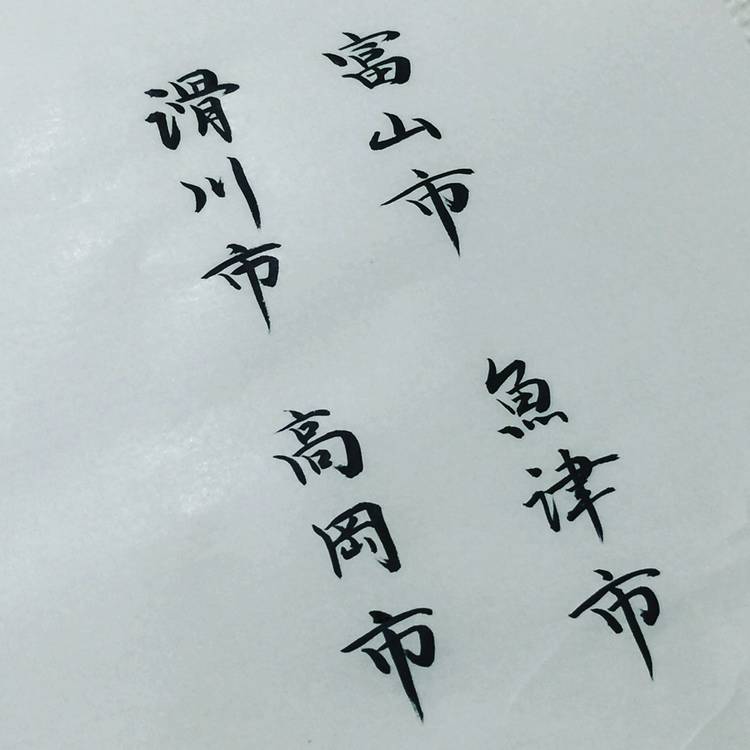 富山市
滑川市
魚津市
高岡市